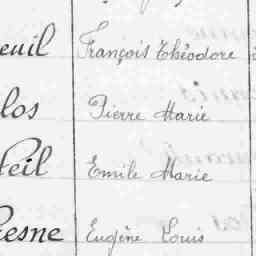 euil François Théodore
los Pierre Marie
teil Emile Marie
resne Eugène Louis